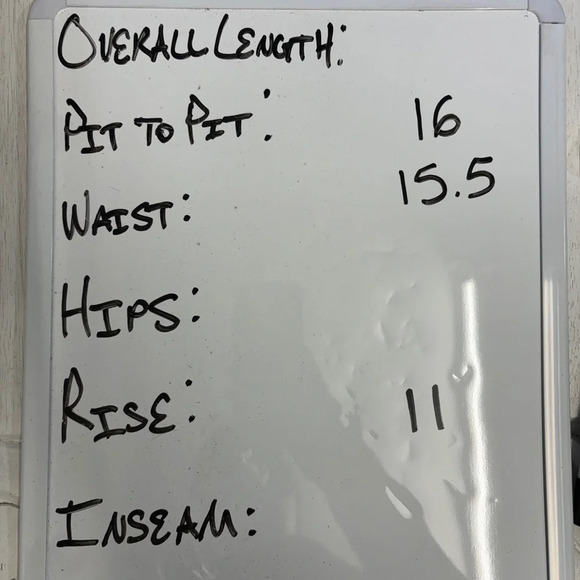 OVERALL LENGTH:
PIT TO PIT: 16
WAIST: 15.5
HIPS:
RISE: 11
INSEAM: